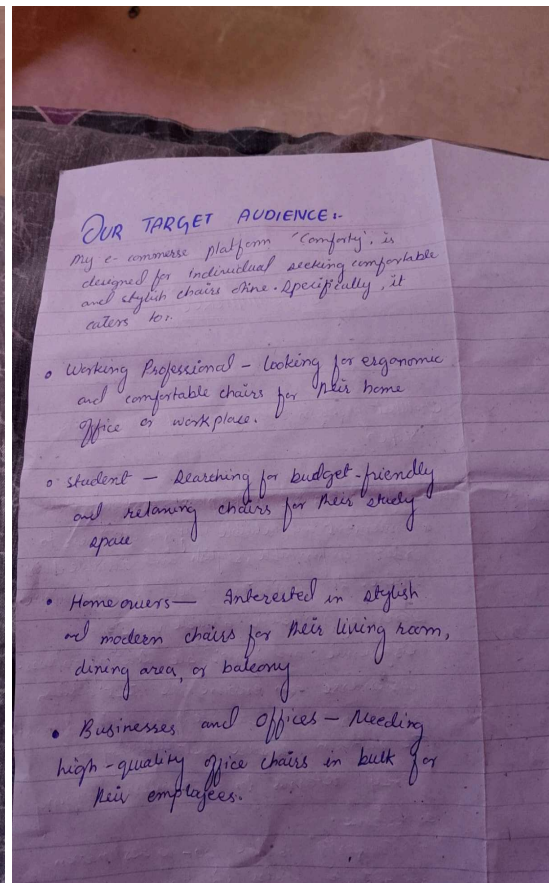 OUR TARGET AUDIENCE:-
My e-commerse platform 'Comforty', is
designed for individual seeking comfortable
and stylish chairs oline. Specifically, it
caters to:-
• Working Professional – Looking for ergonomic
and comfortable chairs for their home
office or workplace.
• Student – Searching for budget-friendly
and relaxing chairs for their study
space
• Home owers— Interested in stylish
and modern chairs for their living room,
dining area, or balcony
• Businesses and Offices – Needing
high-quality office chairs in bulk for
their employees.